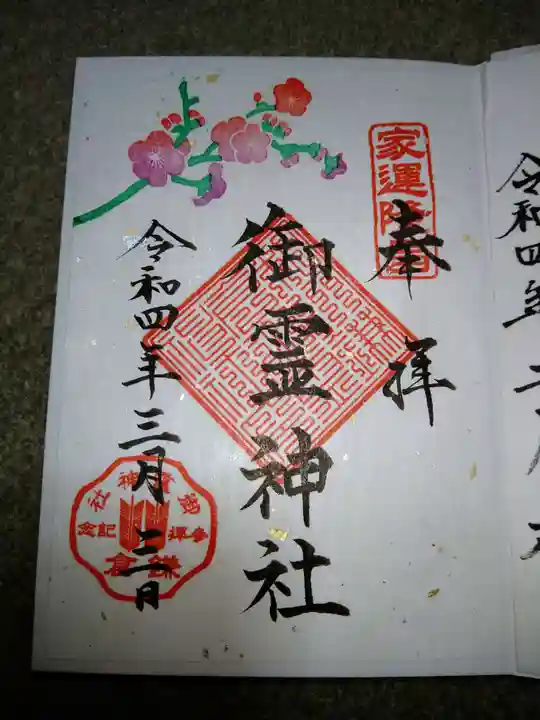 家運隆昌
奉拝
御霊神社
令和四年三月二日
御霊神社
参運記念
鎌倉
令和四年